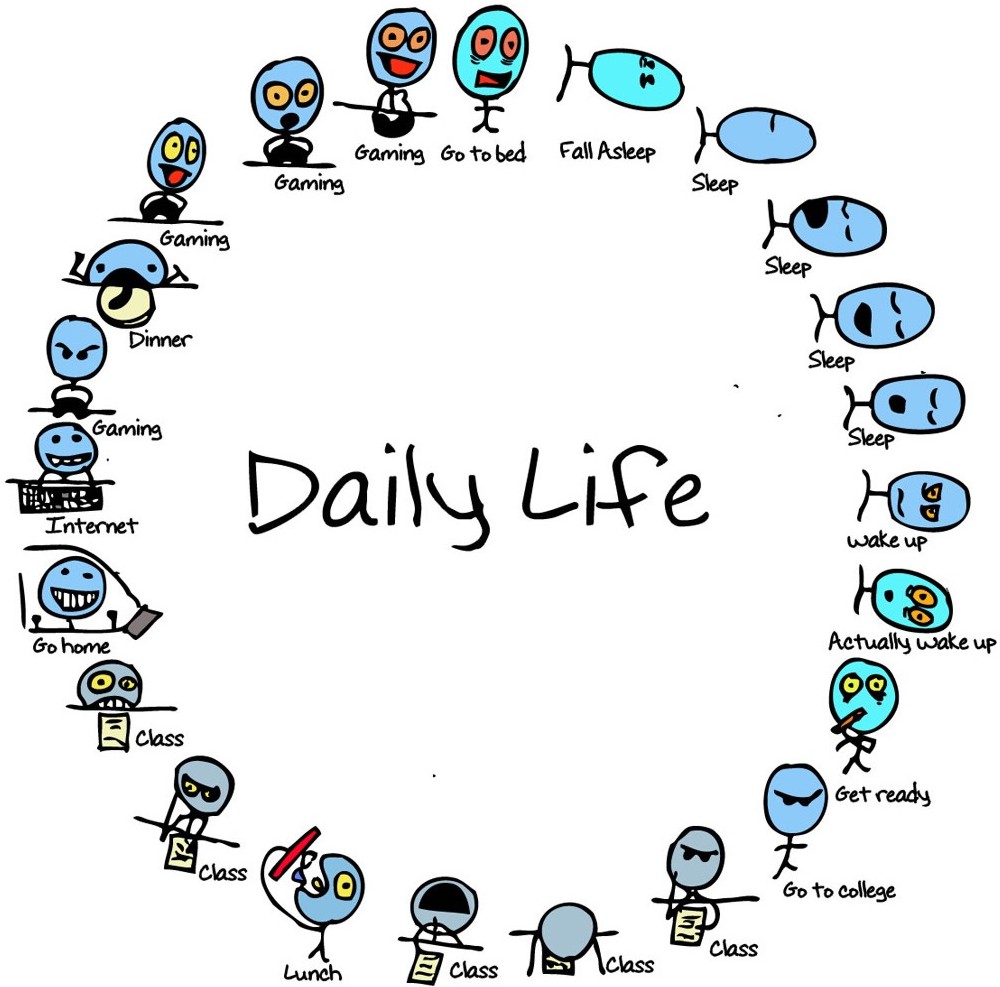 Daily Life
Gaming
Go to bed
Fall Asleep
Sleep
Sleep
Sleep
Sleep
wake up
Actually wake up
Get ready
Go to college
Class
Class
Class
Lunch
Class
Class
Go home
Internet
Gaming
Dinner
Gaming
Gaming